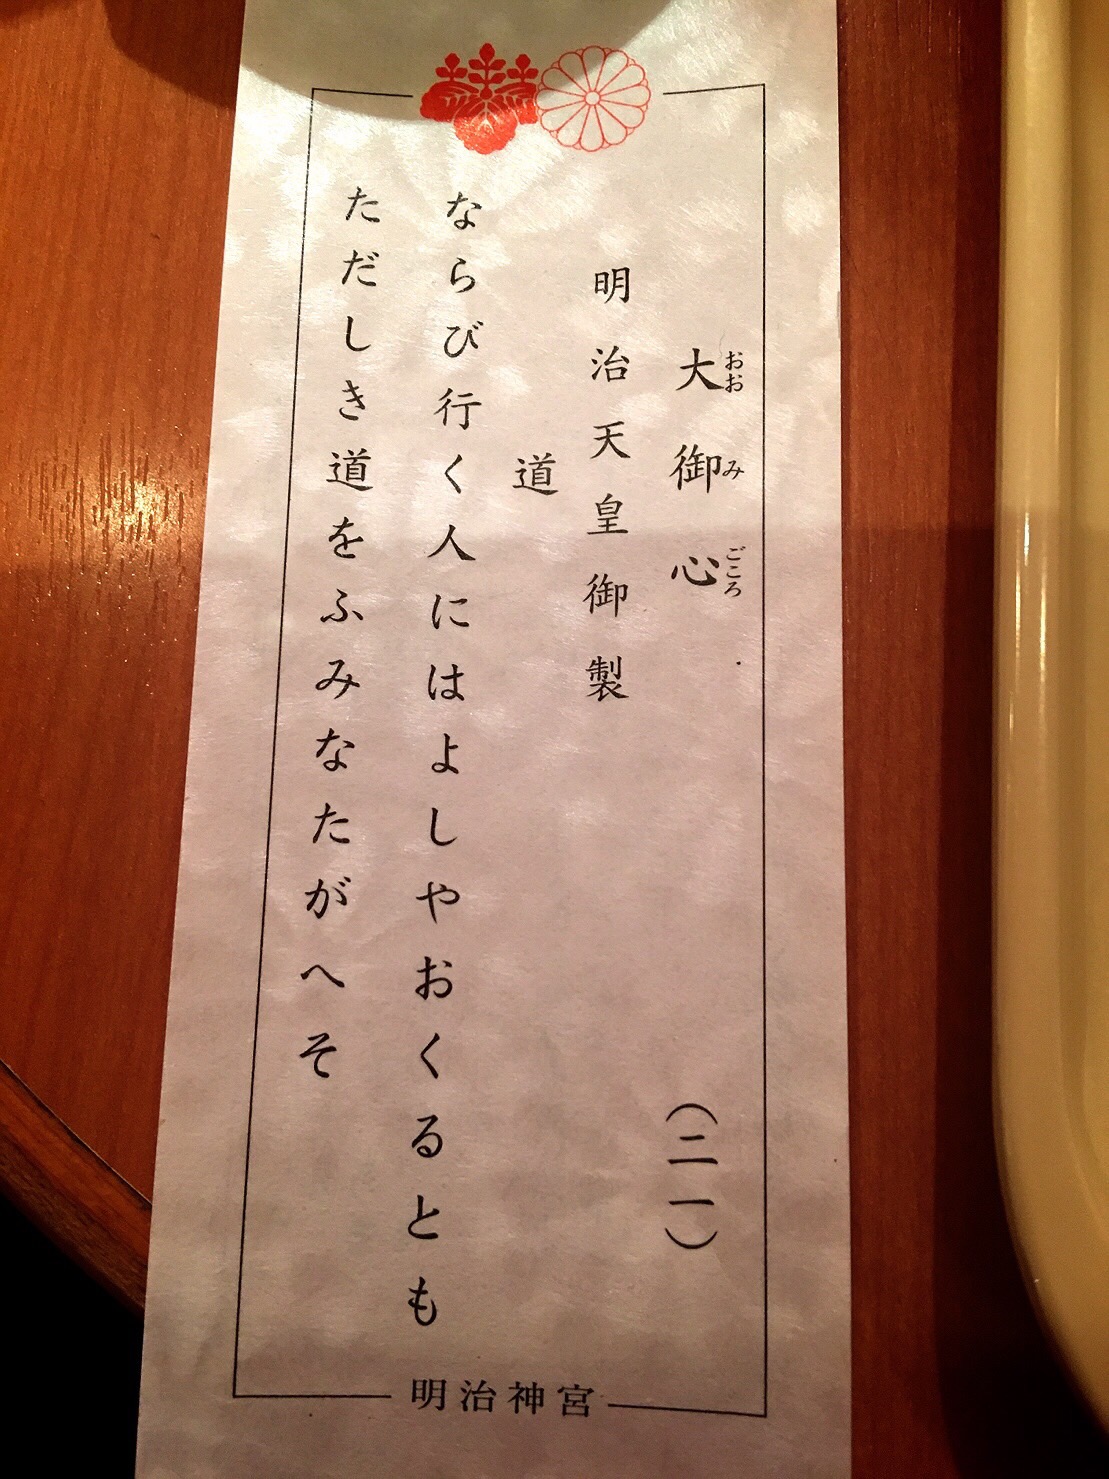 大御心
おおみごころ
（二一）
明治天皇御製
道
ならび行く人にはよしやおくるとも
ただしき道をふみなたがへそ
明治神宮